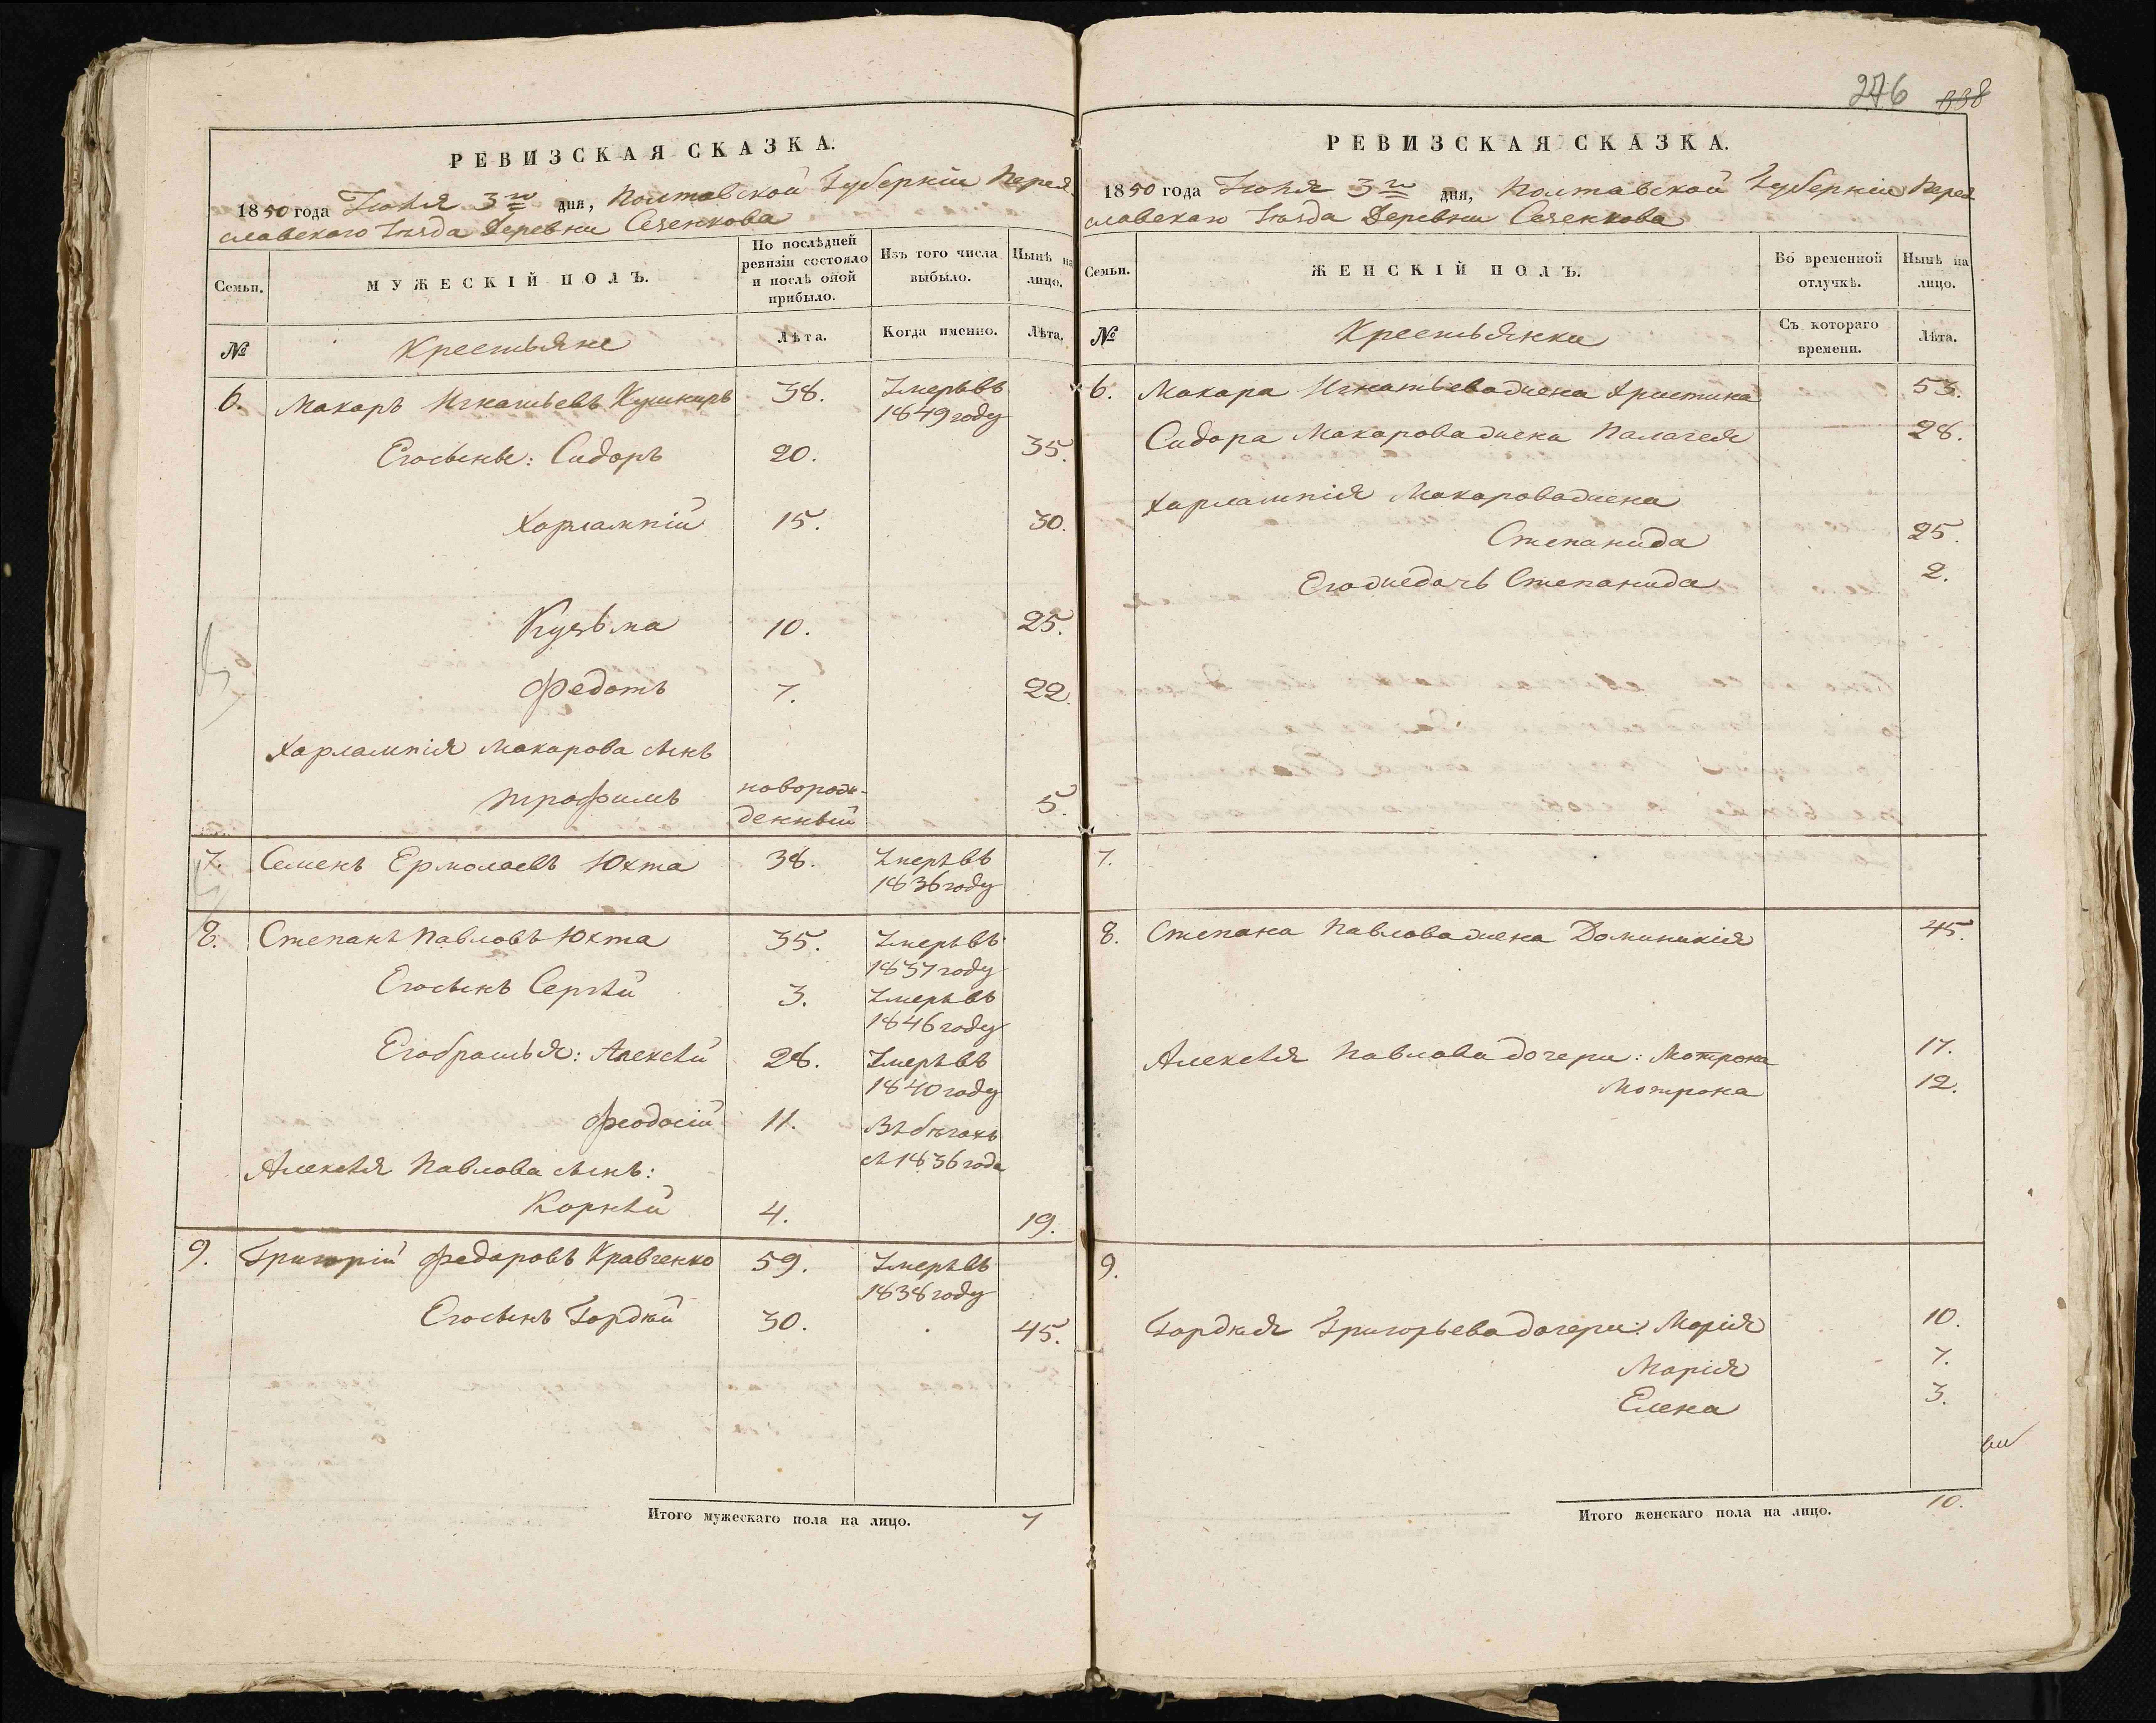 276 338
РЕВИЗСКАЯ СКАЗКА.
1850 года Іюля 3го дня, Полтавской Губерніи Перея
славскаго Уѣзда Деревни Сезенкова
Семьи.
МУЖЕСКІЙ ПОЛЪ.
По послѣдней
ревизіи состояло
и послѣ оной
прибыло.
Изъ того числа
выбыло.
Нынѣ на
лицо.
№
Крестьяне
Лѣта.
Когда именно.
Лѣта.
6. Макаръ Игнатьевъ Кушниръ 38. Умерь въ
1849 году
Его сыны: Сидоръ 20. 35.
Харлампій 15. 30.
Кузьма 10. 25.
Федотъ 7. 22.
Харлампія Макарова сынъ
Трофимъ новорож-
денный 5.
7. Семенъ Ермолаевъ Юхта 38. Умеръ въ
1836 году
8. Степанъ Павловъ Юхта 35. Умеръ въ
1837 году
Его сынъ Сергѣй 3. Умеръ въ
1846 году
Его братья: Алексѣй 28. Умеръ въ
1840 году
Феодосій 11. Въ бѣгахъ
съ 1836 года
Алексѣя Павлова сынъ:
Корнѣй 4. 19.
9. Григорій Федоровъ Кравченко 59. Умеръ въ
1838 году
Его сынъ Гордѣй 30. 45.
Итого мужескаго пола на лицо. 7
РЕВИЗСКАЯ СКАЗКА.
1850 года Іюля 3го дня, Полтавской Губерніи Перея
славскаго Уѣзда Деревни Сезенкова
Семьи.
ЖЕНСКІЙ ПОЛЪ.
Во временной
отлучкѣ.
Нынѣ на
лицо.
№
Крестьянки
Съ котораго
времени.
Лѣта.
6. Макара Игнатьева жена Христина 53.
Сидора Макарова жена Палагея 28.
Харлампія Макарова жена
Степанида 25.
Его же дочь Степанида 2.
7.
8. Степана Павлова жена Доминикія 45.
Алексѣя Павлова дочери: Мотрона 17.
Мотрона 12.
9.
Гордѣя Григорьева дочери: Марія 10.
Марія 7.
Елена 3.
Итого женскаго пола на лицо. 10.